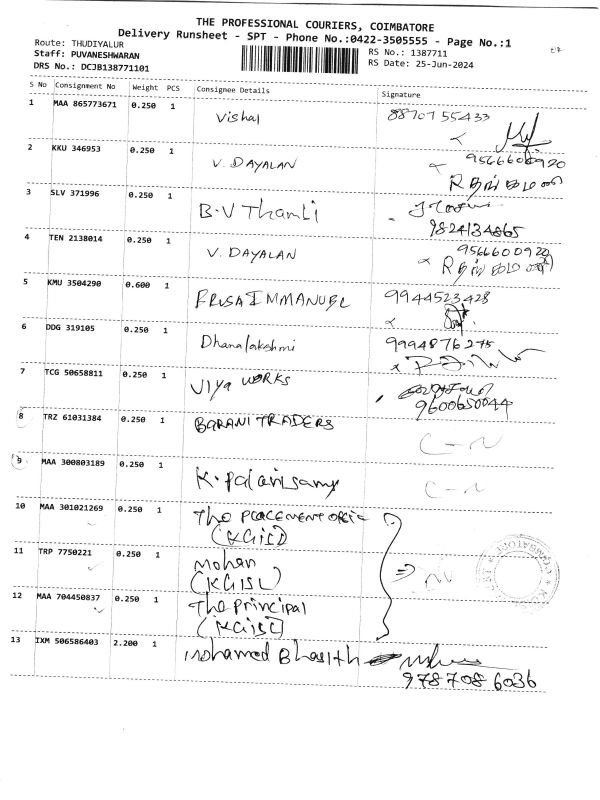 THE PROFESSIONAL COURIERS, COIMBATORE
Delivery Runsheet - SPT - Phone No.:0422-3505555 - Page No.:1
Route: THUDIYALUR
RS No.: 1387711
Staff: PUVANESHWARAN
RS Date: 25-Jun-2024
DRS No.: DCJB138771101
S No Consignment No Weight PCS Consignee Details Signature
1 MAA 865773671 0.250 1 Vishal 8870755433
2 KKU 346953 0.250 1 V. DAYALAN 9566600920
3 SLV 371996 0.250 1 B.V Thamli
9824134865
4 TEN 2138014 0.250 1 V. DAYALAN 9566600920
5 KMU 3504290 0.600 1 9944523428
6 DDG 319105 0.250 1 Dhanalakshmi 9994876275
7 TCG 50658811 0.250 1 Viya WORKS
9600650044
8 TRZ 61031384 0.250 1 BARANI TRADERS
9 MAA 300803189 0.250 1 K. Palanisamy
10 MAA 301021269 0.250 1 The PLACEMENT
11 TRP 7750221 0.250 1 Mohan
(KGISL)
12 MAA 704450837 0.250 1 The Principal
13 IXM 506586403 2.200 1 Mohamed Bhasith
9787086036